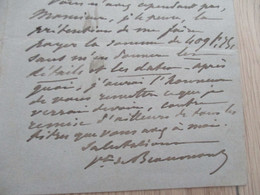 Vous n'avez cependant pas,
Monsieur, je le pense, la
prétention de me faire
payer la somme de 409 f. 25
sans m'en donner les
détails et les dates. Après
quoi, j'aurai l'honneur
de vous remettre ce que je
verrai devoir, contre
remise d'ailleurs de tous les
titres que vous avez à moi.
Salutations
Vte de Beaumont